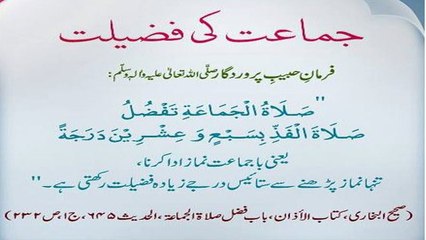 جماعت کی فضیلت
فرمانِ حبیبِ پروردگار صلَّی اللہ تعالیٰ علیہ والہٖ وسلَّم:
"صَلَاةُ الْجَمَاعَةِ تَفْضُلُ
صَلَاةَ الْفَذِّ بِسَبْعٍ وَ عِشْرِیْنَ دَرَجَةً
یعنی با جماعت نماز ادا کرنا،
تنہا نماز پڑھنے سے ستائیس درجے زیادہ فضیلت رکھتی ہے۔"
(صحیح البخاری، کتاب الأذان، باب فضل صلاة الجماعة، الحدیث ۶۴۵، ج۱، ص ۲۳۲)